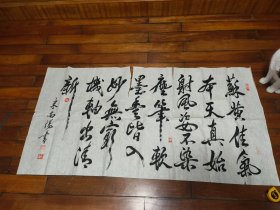 蘇黄佳氣
本天真姑
射風姿不染
塵筆軟
墨豊皆入
妙無窮
機軸出清
新